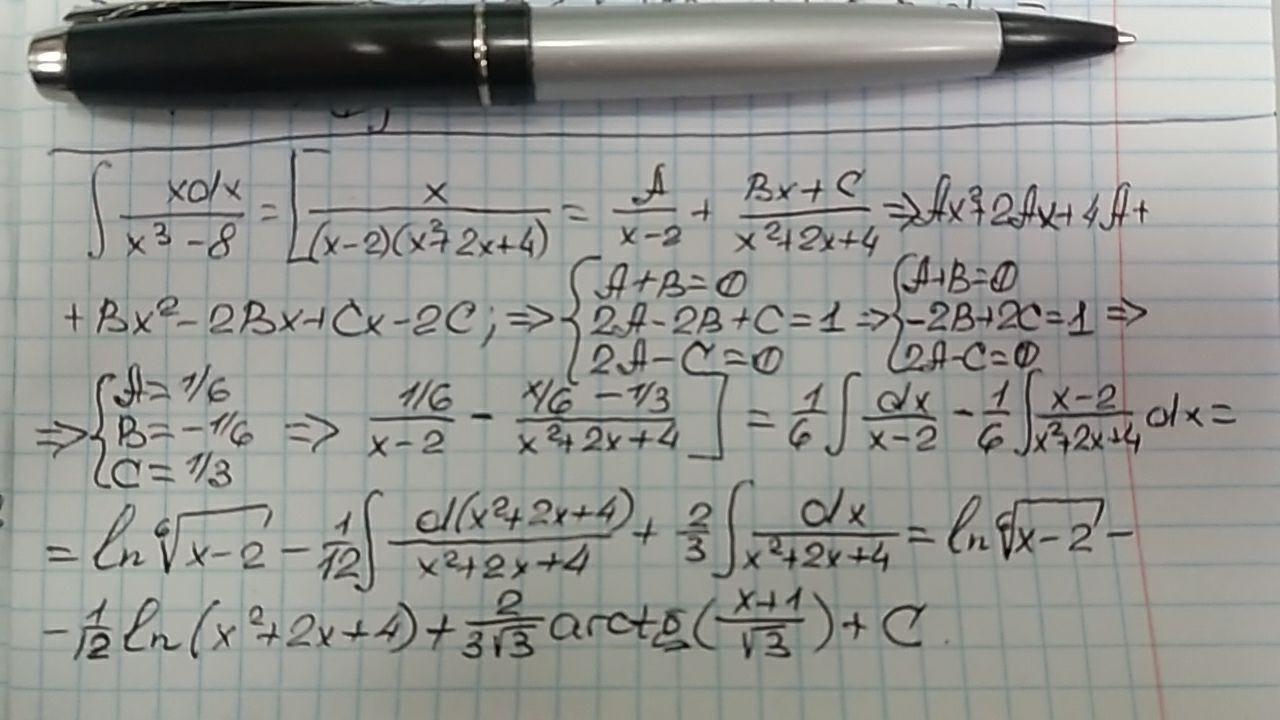 ∫ xdx/(x³ - 8) = [ x/((x-2)(x²+2x+4)) = A/(x-2) + (Bx+C)/(x²+2x+4) ⇒ Ax²+2Ax+4A+
+ Bx² - 2Bx + Cx - 2C; ⇒ { A+B=0; 2A-2B+C=1; 2A-C=0 ⇒ { A+B=0; -2B+2C=1; 2A-C=0 ⇒
⇒ { A=1/6; B=-1/6; C=1/3 ⇒ (1/6)/(x-2) - (x/6 - 1/3)/(x²+2x+4) ] = 1/6 ∫ dx/(x-2) - 1/6 ∫ (x-2)/(x²+2x+4) dx =
= ln ⁶√(x-2) - 1/12 ∫ d(x²+2x+4)/(x²+2x+4) + 2/3 ∫ dx/(x²+2x+4) = ln ⁶√(x-2) -
- 1/12 ln(x²+2x+4) + 2/(3√3) arctg((x+1)/√3) + C.